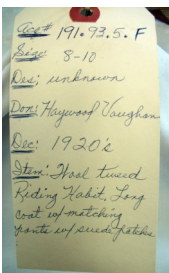 Acc# 191.93.5.F
Size: 8-10
Des: unknown
Don: Haywood Vaughan
Dec: 1920's
Item: Wool tweed
Riding Habit. Long
coat w/ matching
pants w/ suede patches